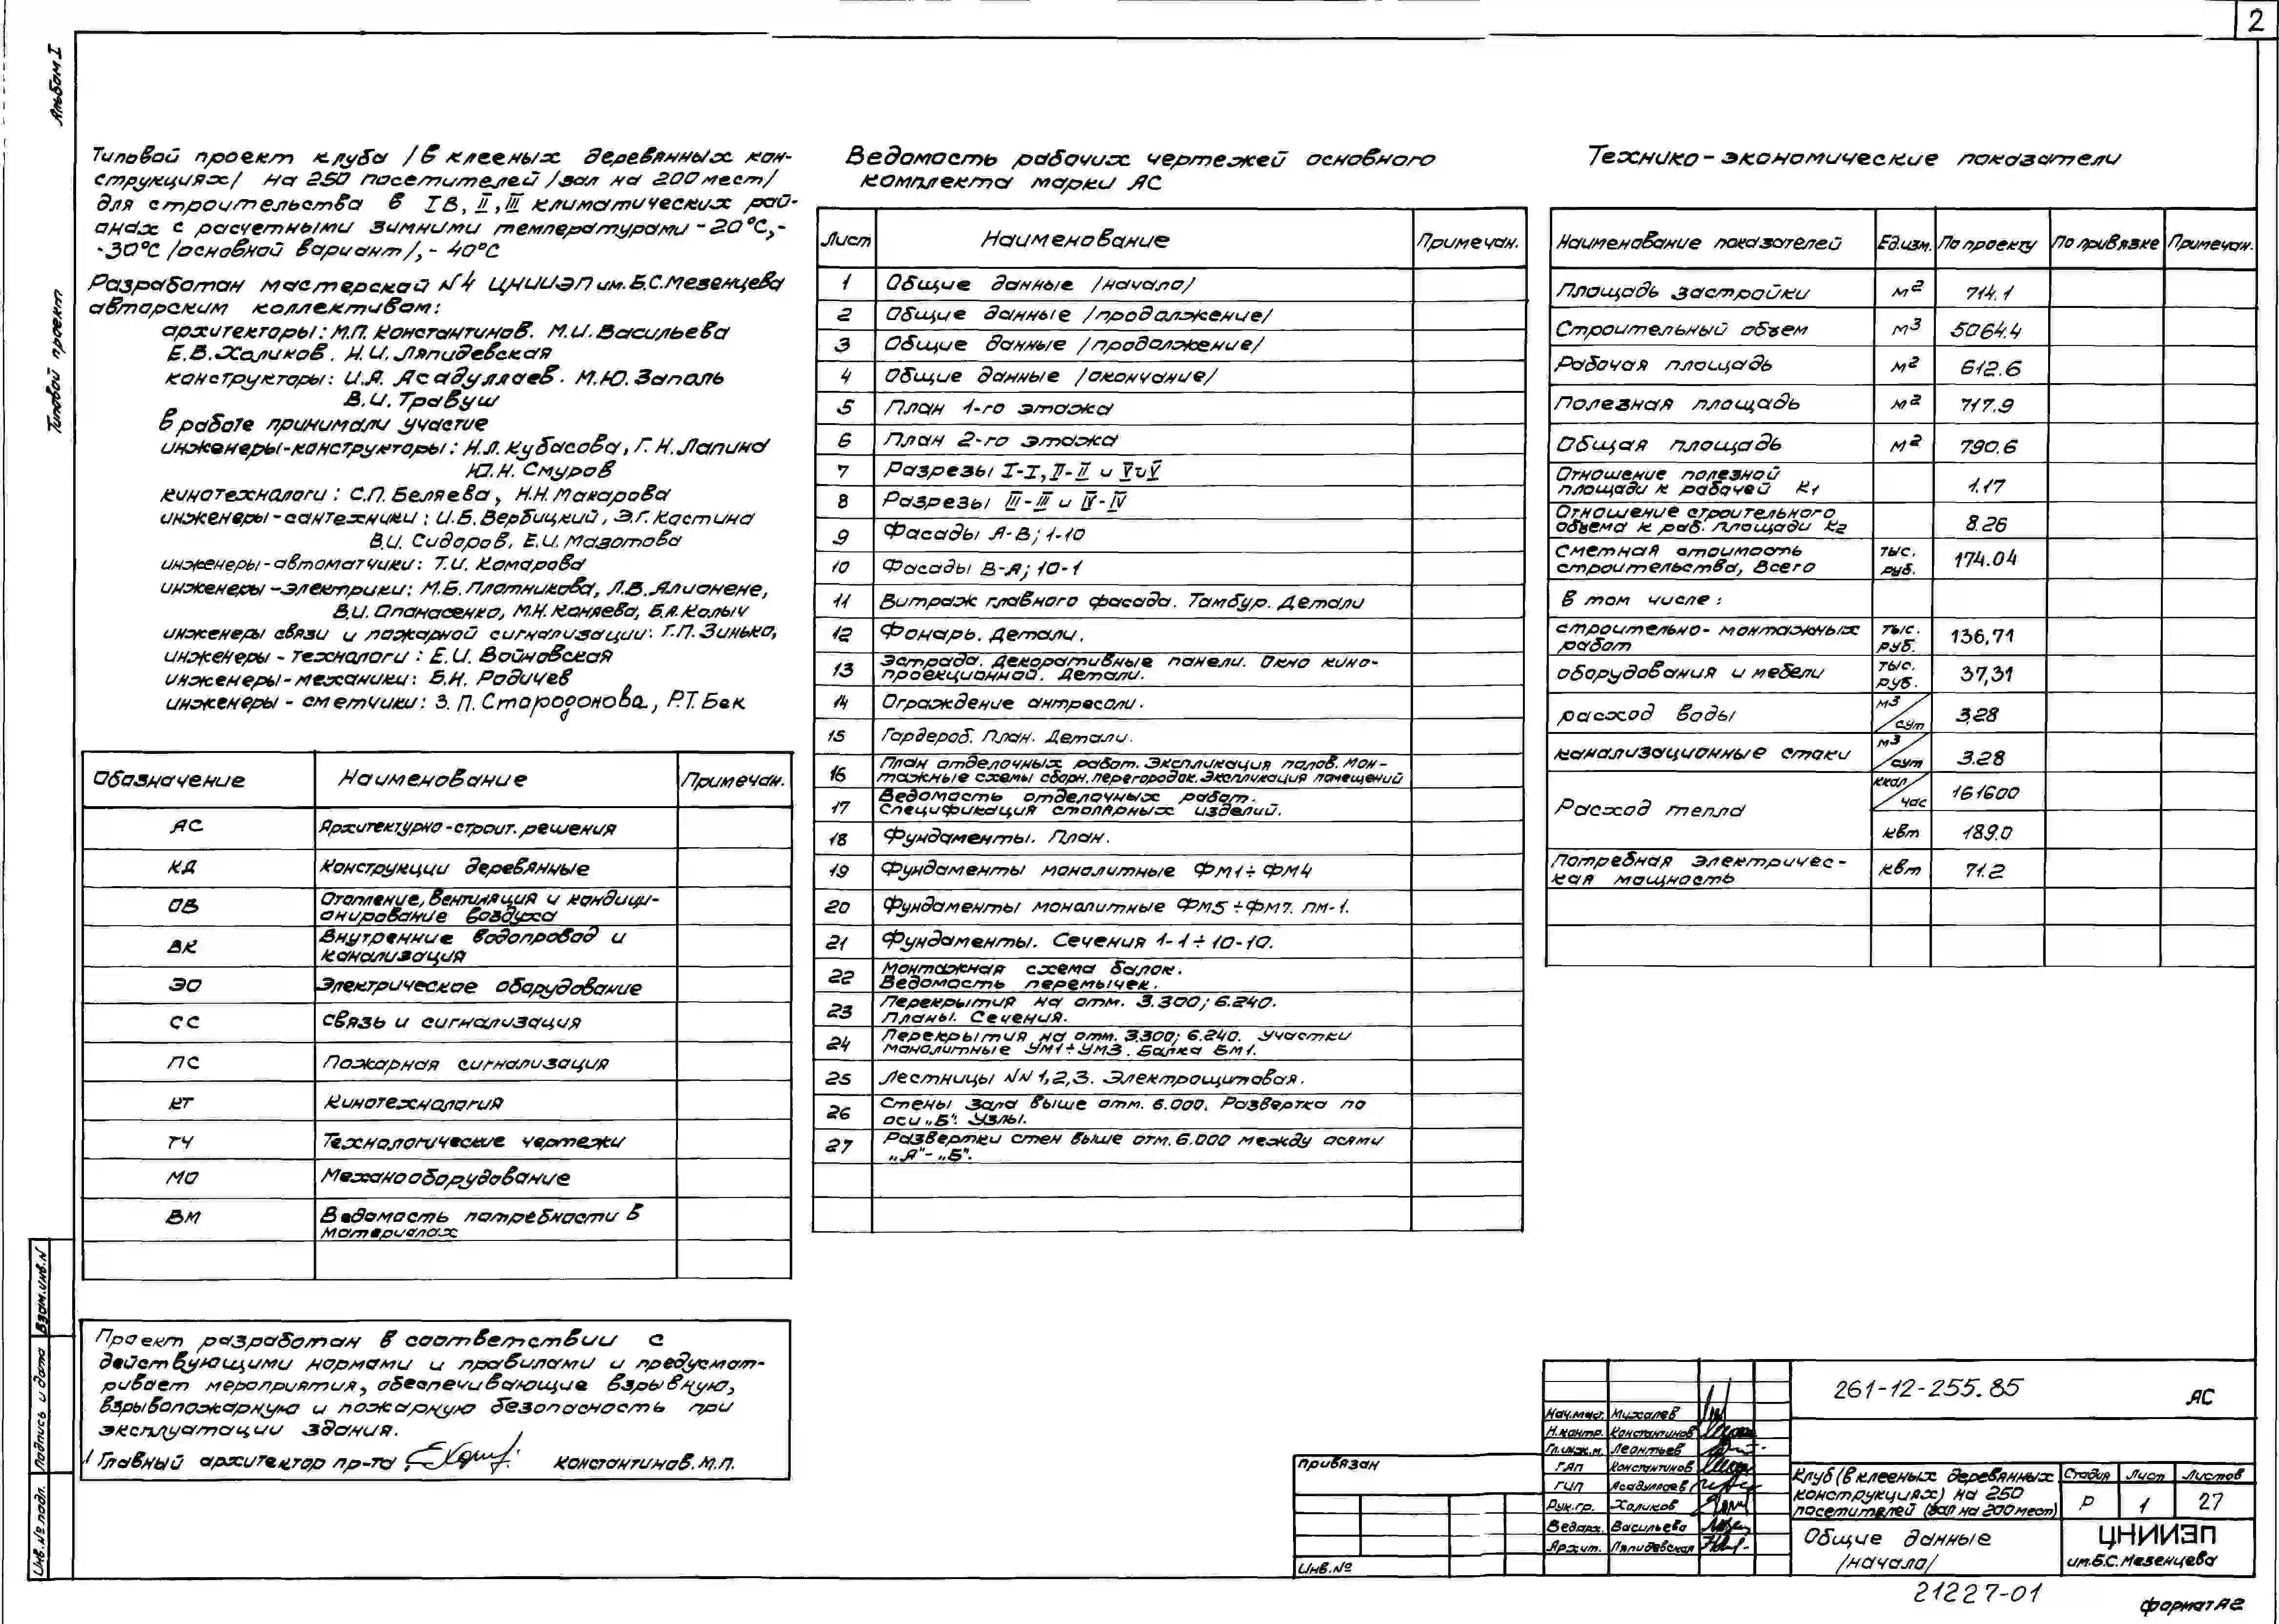 2
Альбом I
Типовой проект
Типовой проект клуба /в клееных деревянных кон-
струкциях/ на 250 посетителей /зал на 200 мест/
для строительства в IВ, II, III климатических рай-
онах с расчетными зимними температурами -20°С,-
-30°С /основной вариант/,- 40°С
Разработан мастерской №4 ЦНИИЭП им.Б.С.Мезенцева
авторским коллективом:
архитекторы: М.П. Константинов. М.И. Васильева
Е.В.Халиков. Н.И. Ляпидевская
конструкторы: И.А. Асадуллаев. М.Ю. Заполь
В.И. Травуш
в работе принимали участие
инженеры-конструкторы: Н.Л.Кубасова, Г.Н.Лапина
Ю.Н. Смуров
кинотехнологи: С.П. Беляева, Н.Н. Макарова
инженеры-сантехники: И.Б. Вербицкий, Э.Г. Костина
В.И. Сидоров, Е.И. Мазотова
инженеры-автоматчики: Т.И. Комарова
инженеры-электрики: М.Б. Плотникова, Л.В. Алионене,
В.И. Опанасенко, М.Н. Коняева, Б.Я. Колыч
инженеры связи и пожарной сигнализации: Г.П. Зинько,
инженеры - технологи: Е.И. Войновская
инженеры-механики: Б.Н. Родичев
инженеры - сметчики: З.П. Стародонова, Р.Т. Бек
Обозначение Наименование Примечан.
АС Архитектурно-строит. решения
КД Конструкции деревянные
ОВ Отопление, вентиляция и кондици-
онирование воздуха
ВК Внутренние водопровод и
канализация
ЭО Электрическое оборудование
СС Связь и сигнализация
ПС Пожарная сигнализация
КТ Кинотехнология
ТЧ Технологические чертежи
МО Механооборудование
ВМ Ведомость потребности в
материалах
Проект разработан в соответствии с
действующими нормами и правилами и предусмат-
ривает мероприятия, обеспечивающие взрывную,
взрывопожарную и пожарную безопасность при
эксплуатации здания.
Главный архитектор пр-та Константинов.М.П.
Ведомость рабочих чертежей основного
комплекта марки АС
Лист Наименование Примечан.
1 Общие данные /начало/
2 Общие данные /продолжение/
3 Общие данные /продолжение/
4 Общие данные /окончание/
5 План 1-го этажа
6 План 2-го этажа
7 Разрезы I-I, II-II и V-V
8 Разрезы III-III и IV-IV
9 Фасады А-В; 1-10
10 Фасады В-А; 10-1
11 Витраж главного фасада. Тамбур. Детали
12 Фонарь. Детали.
13 Эстрада. Декоративные панели. Окно кино-
проекционной. Детали.
14 Ограждение антресоли.
15 Гардероб. План. Детали.
16 План отделочных работ. Экспликация полов. Мон-
тажные схемы сборн. перегородок. Экспликация помещений
17 Ведомость отделочных работ.
Спецификация столярных изделий.
18 Фундаменты. План.
19 Фундаменты монолитные ФМ1÷ФМ4
20 Фундаменты монолитные ФМ5÷ФМ7. ПМ-1.
21 Фундаменты. Сечения 1-1÷10-10.
22 Монтажная схема балок.
Ведомость перемычек.
23 Перекрытия на отм. 3.300; 6.240.
Планы. Сечения.
24 Перекрытия на отм. 3.300; 6.240. Участки
монолитные УМ1÷УМ3. Балка БМ1.
25 Лестницы NN 1,2,3. Электрощитовая.
26 Стены зала выше отм. 6.000. Развертка по
оси „Б". Узлы.
27 Развертки стен выше отм. 6.000 между осями
„А"-„Б".
Технико-экономические показатели
Наименование показателей Ед.изм. По проекту По привязке Примечан.
Площадь застройки м2 714.1
Строительный объем м3 5064.4
Рабочая площадь м2 612.6
Полезная площадь м2 717.9
Общая площадь м2 790.6
Отношение полезной
площади к рабочей К1 1.17
Отношение строительного
объема к раб. площади К2 8.26
Сметная стоимость тыс.
строительства, всего руб. 174.04
в том числе:
строительно-монтажных тыс.
работ руб. 136,71
оборудования и мебели тыс. руб. 37,31
расход воды м3/сут 3.28
канализационные стоки м3/сут 3.28
Расход тепла ккал/час 161600
квт 189.0
Потребная электричес-
кая мощность квт 71.2
Взам.инв.N
Подпись и дата
Инв.№ подл.
Привязан
Инв.№
Нач.маст. Михалев
Н.контр. Константинов
Гл.инж.м. Леонтьев
ГАП Константинов
ГИП Асадуллаев
Рук.гр. Халиков
Вед.арх. Васильева
Архит. Ляпидевская
261-12-255.85 АС
Клуб (в клееных деревянных
конструкциях) на 250
посетителей (зал на 200 мест)
Стадия Лист Листов
Р 1 27
Общие данные
/начало/
ЦНИИЭП
им.Б.С.Мезенцева
21227-01
формат А2